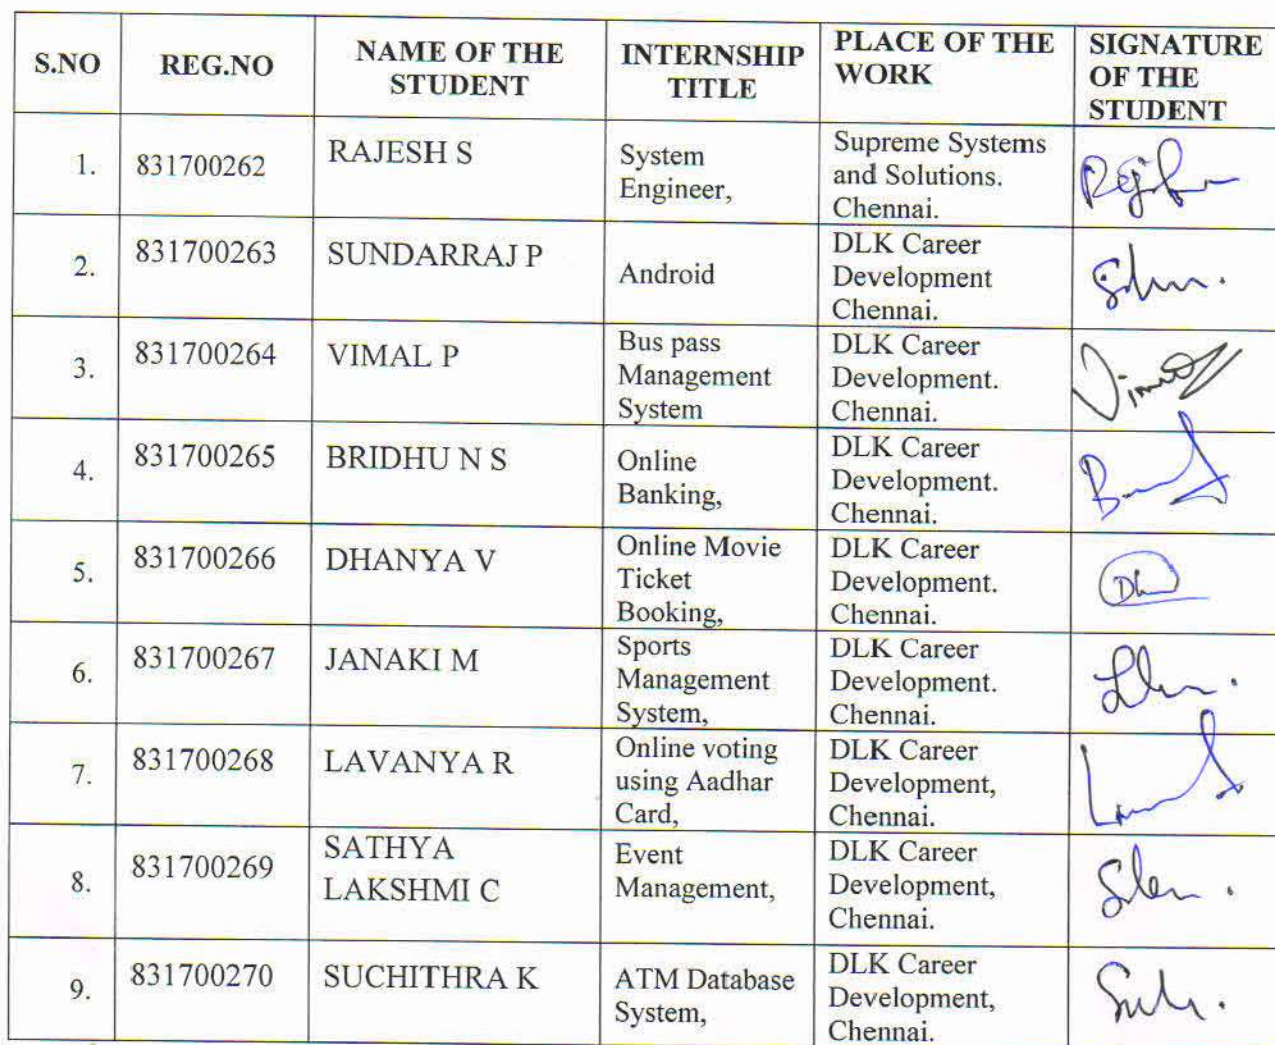 S.NO
REG.NO
NAME OF THE
STUDENT
INTERNSHIP
TITLE
PLACE OF THE
WORK
SIGNATURE
OF THE
STUDENT
1.
831700262
RAJESH S
System
Engineer,
Supreme Systems
and Solutions.
Chennai.
2.
831700263
SUNDARRAJ P
Android
DLK Career
Development
Chennai.
3.
831700264
VIMAL P
Bus pass
Management
System
DLK Career
Development.
Chennai.
4.
831700265
BRIDHU N S
Online
Banking,
DLK Career
Development.
Chennai.
5.
831700266
DHANYA V
Online Movie
Ticket
Booking,
DLK Career
Development.
Chennai.
6.
831700267
JANAKI M
Sports
Management
System,
DLK Career
Development.
Chennai.
7.
831700268
LAVANYA R
Online voting
using Aadhar
Card,
DLK Career
Development,
Chennai.
8.
831700269
SATHYA
LAKSHMI C
Event
Management,
DLK Career
Development,
Chennai.
9.
831700270
SUCHITHRA K
ATM Database
System,
DLK Career
Development,
Chennai.